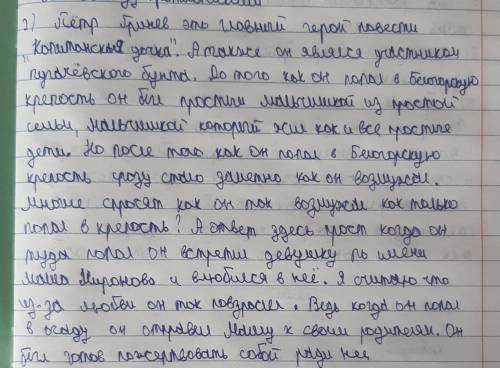 2) Пётр Гринёв это главный герой повести
"Капитанская дочка". А также он являлся участником
пугачёвского бунта. До того как он попал в Белогорскую
крепость он был простым мальчишкой из простой
семьи, мальчишкой который жил как и все простые
дети. Но после того как он попал в Белогорскую
крепость сразу стало заметно как он возмужал.
Многие спросят как он так возмужал как только
попал в крепость? А ответ здесь прост когда он
туда попал он встретил девушку по имени
Маша Миронова и влюбился в неё. Я считаю что
из-за любви он так повзрослел. Ведь когда он попал
в осаду он отправил Машу к своим родителям. Он
был готов пожертвовать собой ради неё